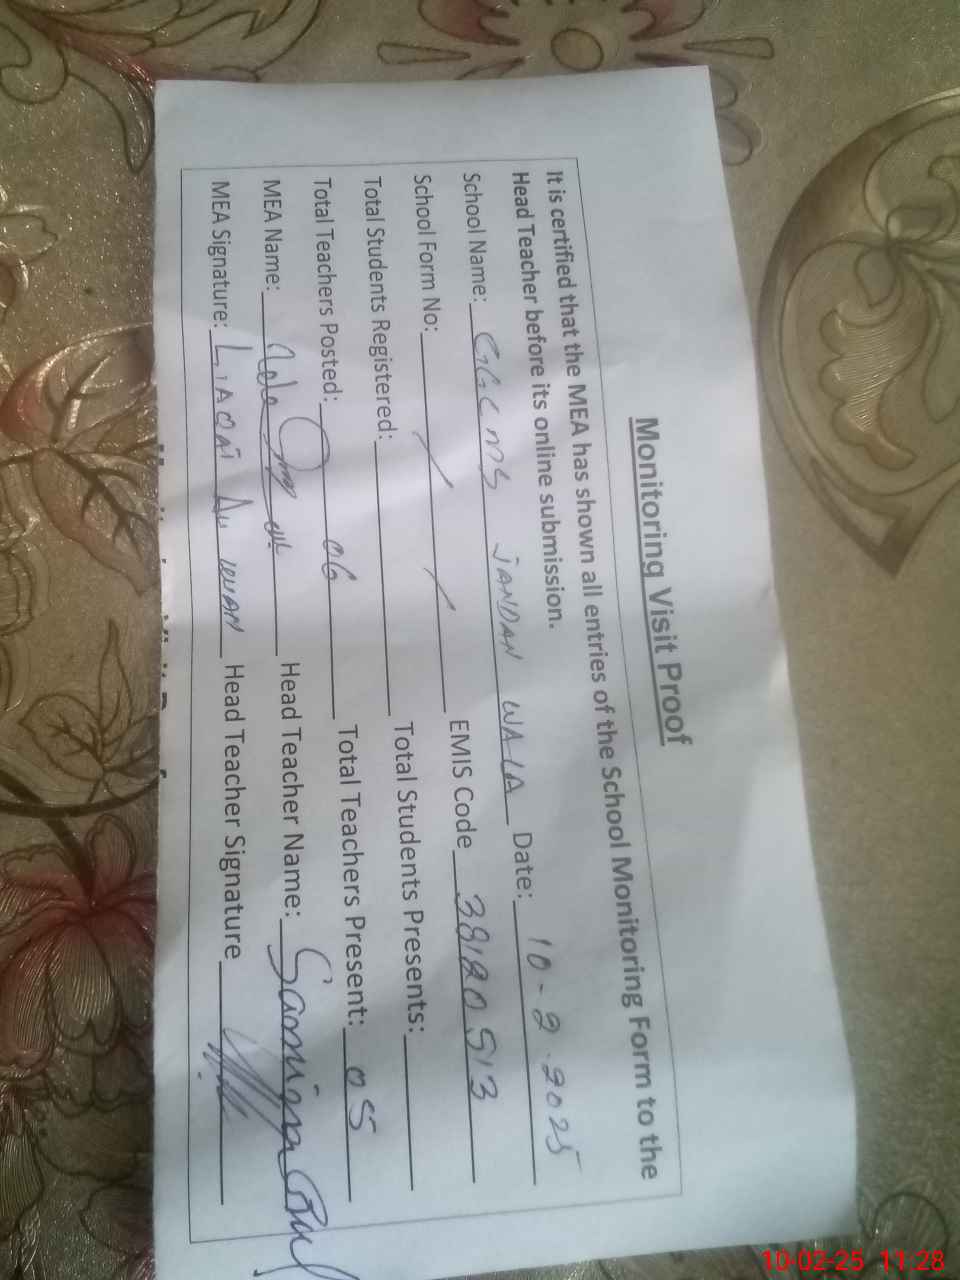 Monitoring Visit Proof
It is certified that the MEA has shown all entries of the School Monitoring Form to the
Head Teacher before its online submission.
School Name: GGCMS JANDAN WALA Date: 10-2-2025
School Form No: EMIS Code 38120513
Total Students Registered: Total Students Presents:
Total Teachers Posted: 06 Total Teachers Present: 05
MEA Name: Head Teacher Name: Samina
MEA Signature: LIAQAT Head Teacher Signature
10-02-25 11:28